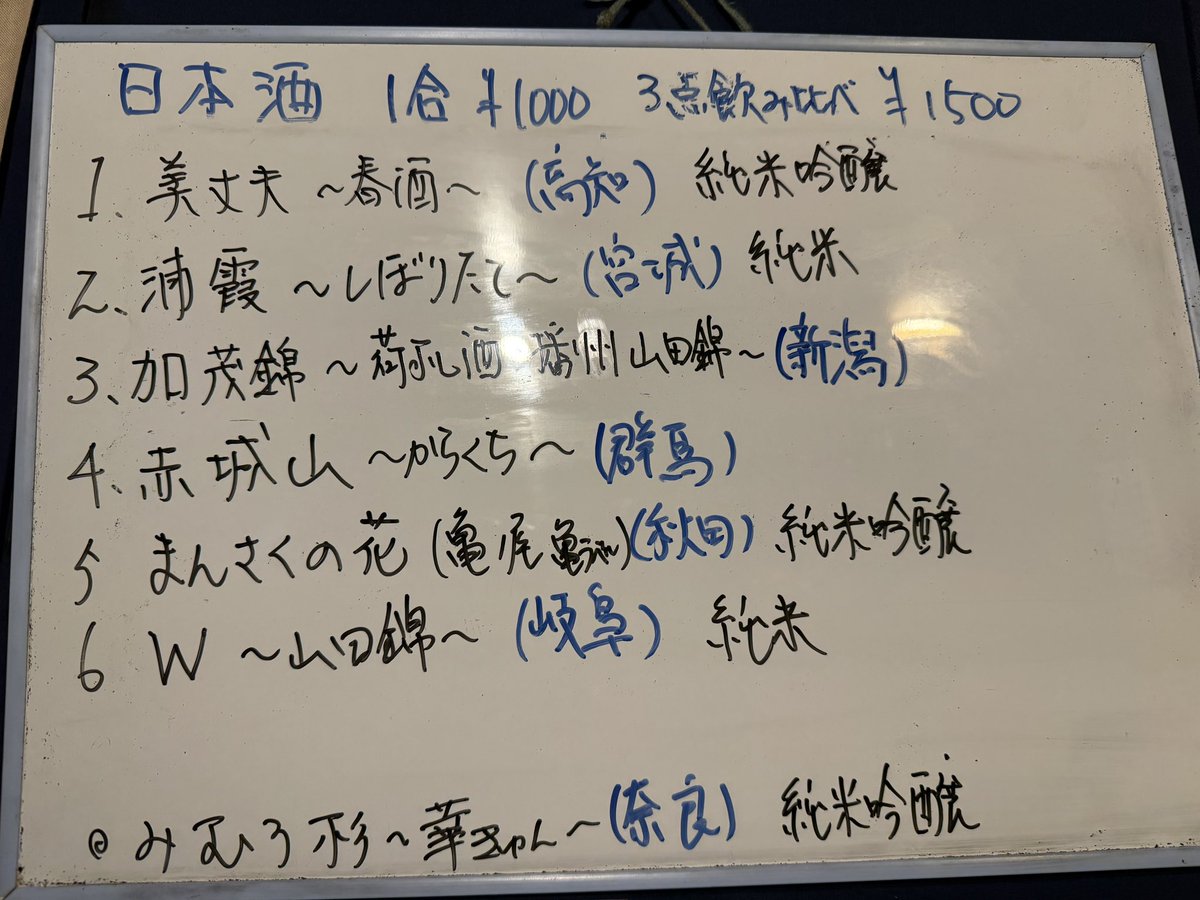 日本酒 1合 ¥1000 3点飲み比べ ¥1500
1、美丈夫 ～春酒～ (高知) 純米吟醸
2、浦霞 ～しぼりたて～ (宮城) 純米
3、加茂錦 ～荷札酒 播州山田錦～ (新潟)
4、赤城山 ～からくち～ (群馬)
5 まんさくの花 (亀ノ尾 亀ラベル) (秋田) 純米吟醸
6 W ～山田錦～ (岐阜) 純米
@ みむろ杉 ～華きゅん～ (奈良) 純米吟醸